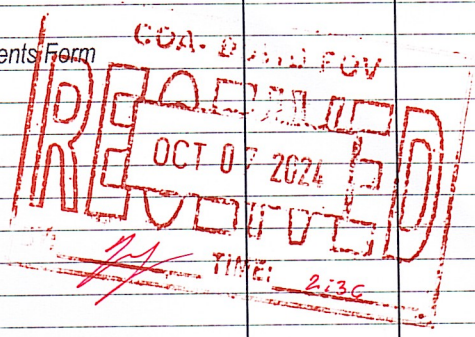 ents Form
COA-
RECEIVED
OCT 07 2024
TIME: 2:30